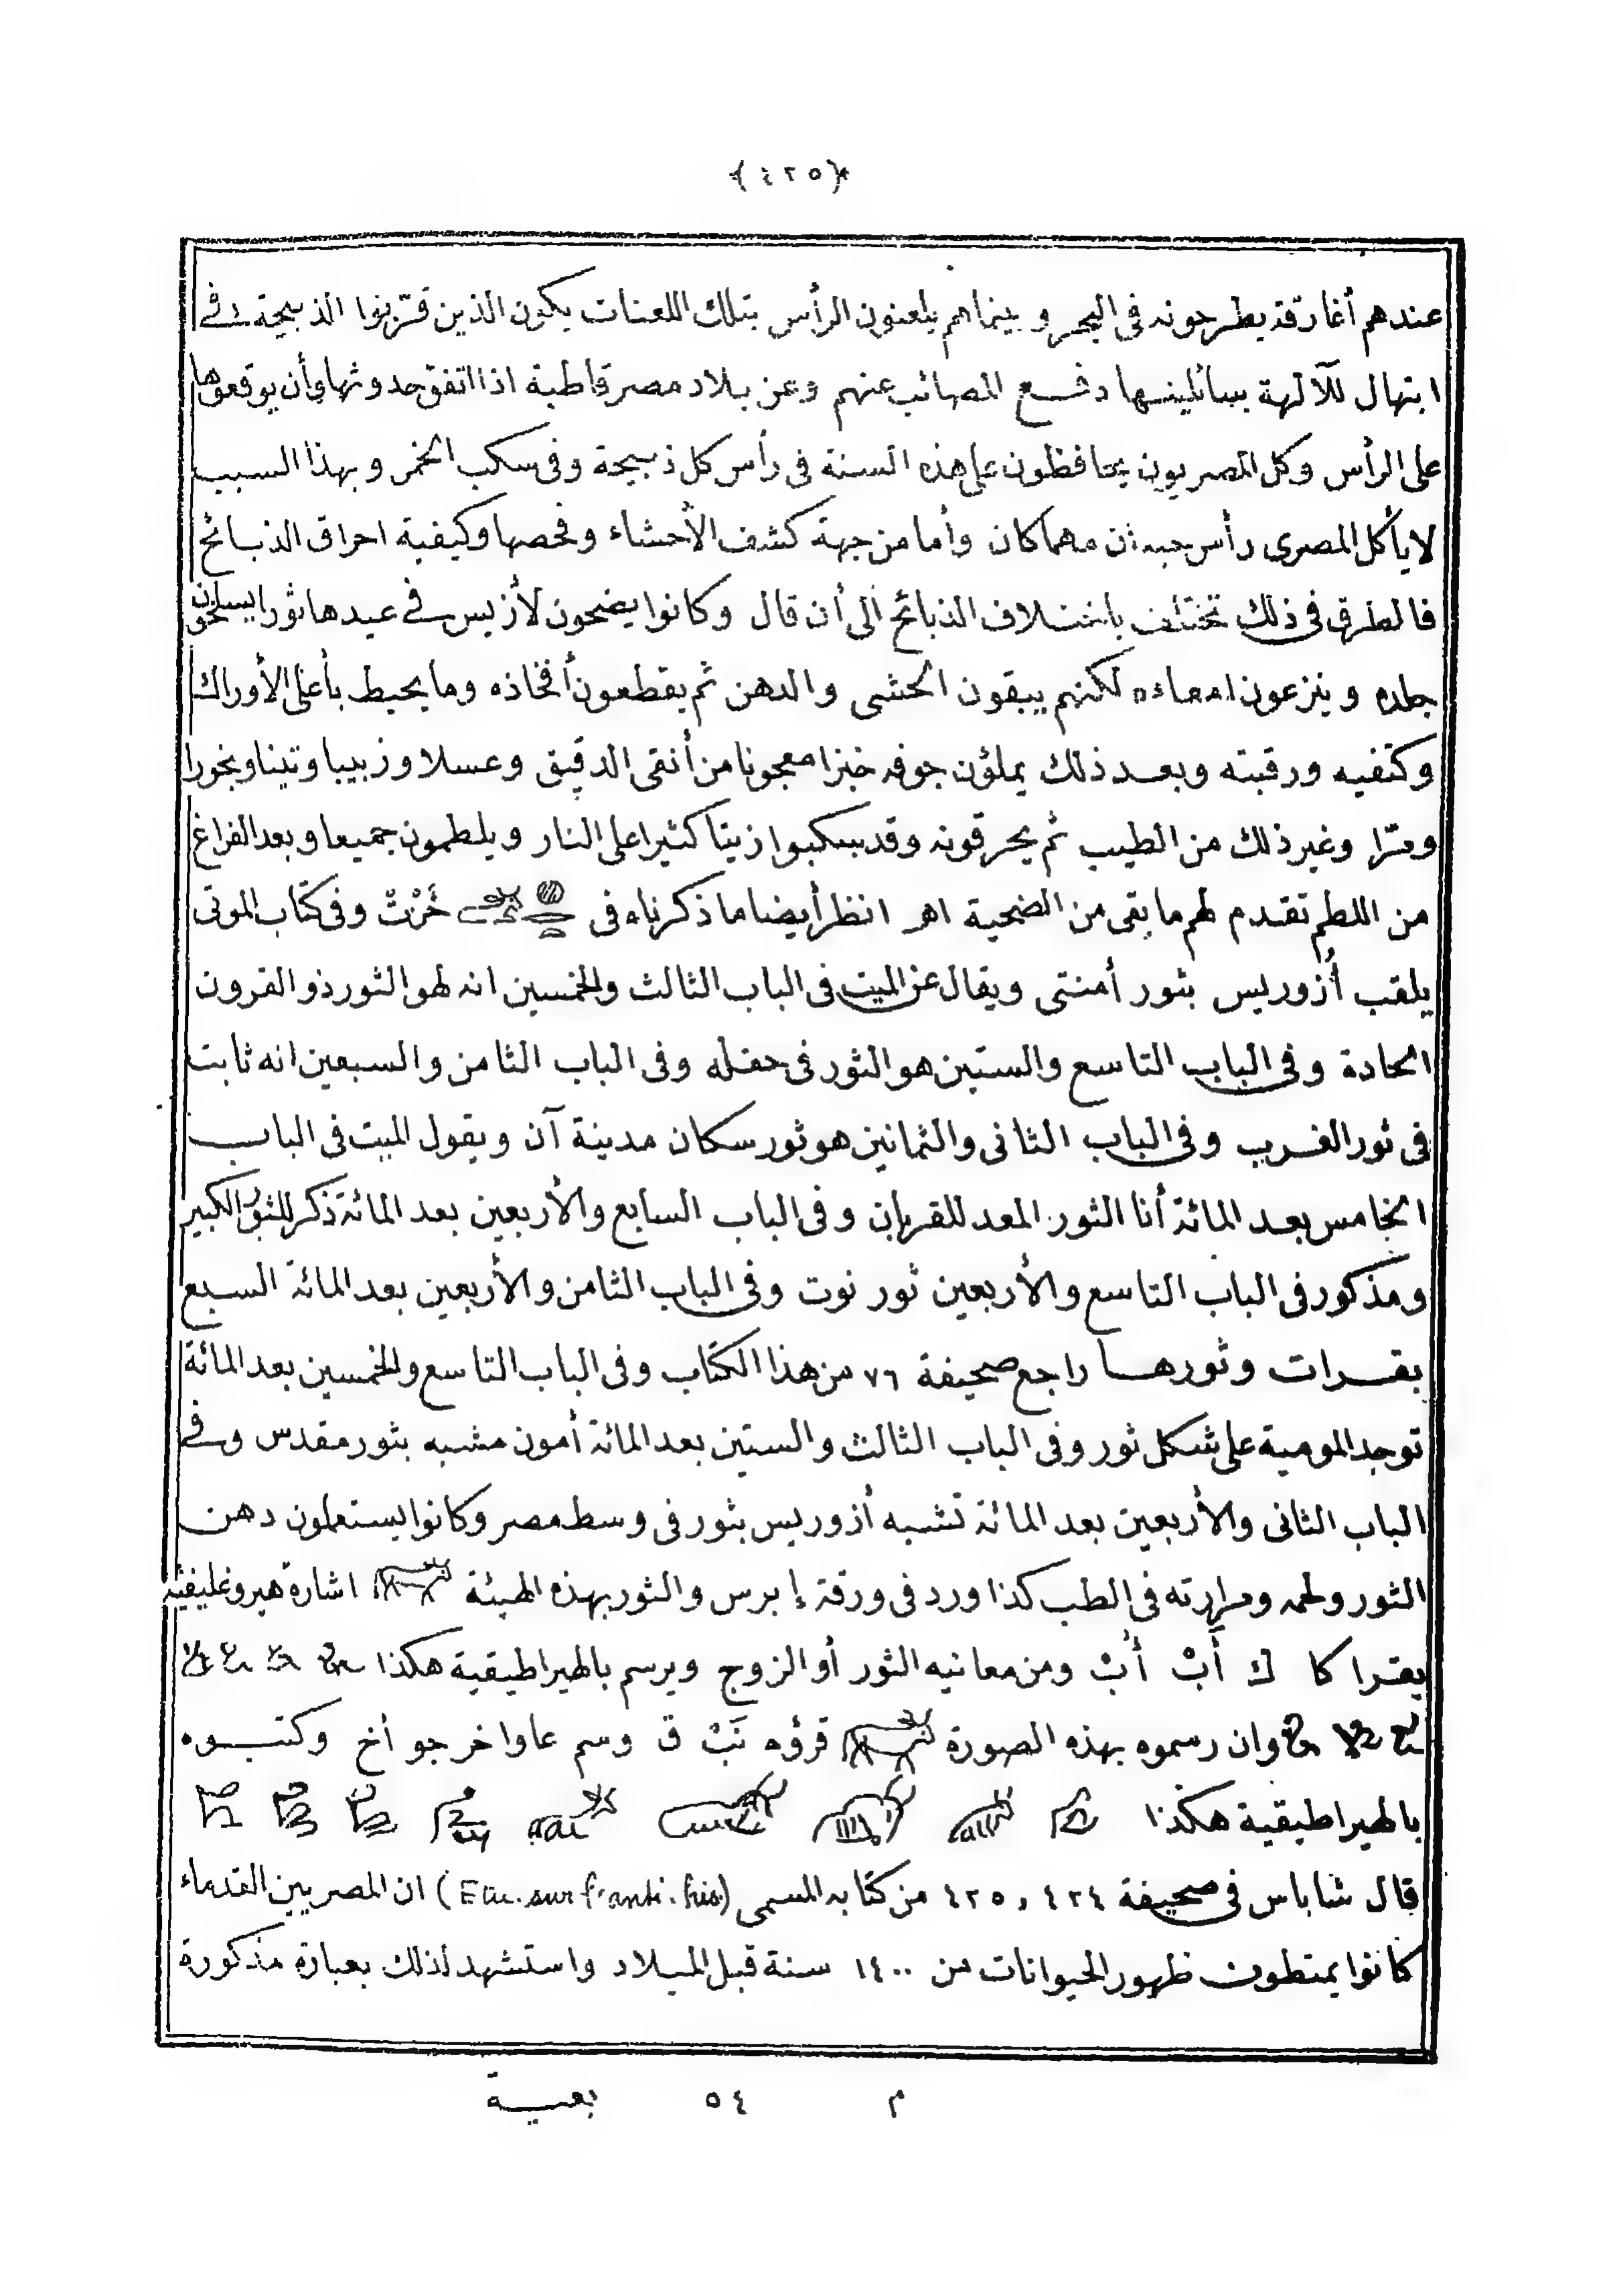 *(٤٢٥)*
عندهم أغارقة يطرحونه فى البحر و بينماهم يلعنون الرأس بتلك اللعنات يكون الذين قرّبوا الذبيحة فى
ابتهال للآلهة يسائلينها دفع المصائب عنهم وعن بلاد مصر قاطبة اذا اتفق حدوثها وأن يوقعوها
على الرأس وكل المصريون يحافظون على هذه السنة فى رأس كل ذبيحة وفى سكب الخمر وبهذا السبب
لا يأكل المصرى رأس حيوان مهما كان وأما من جهة كشف الأحشاء وفحصها وكيفية احراق الذبائح
فالطرق فى ذلك تختلف باختلاف الذبائح الى أن قال وكانوا يضحون لأزيس فى عيدها ثورا يسلخون
جلده وينزعون امعاءه لكنهم يبقون الحشى والدهن ثم يقطعون أفخاذه وما يحيط بأعلى الأوراك
وكتفيه ورقبته وبعد ذلك يملؤن جوفه خبزا معجونا من أنقى الدقيق وعسلا وزبيبا وتينا وبخورا
ومرّا وغير ذلك من الطيب ثم يحرقونه وقد سكبوا زيتا كثيرا على النار ويلطمون جميعا وبعد الفراغ
من اللطم تقدم لهم ما بقى من الضحية اهـ انظر أيضا ما ذكرناه فى خَرْتْ وفى كتاب الموتى
يلقب أُزوريس بثور أمنتى ويقال عن الميت فى الباب الثالث والخمسين انه لهو الثور ذو القرون
الحادة وفى الباب التاسع والستين هو الثور فى حقله وفى الباب الثامن والسبعين انه ثابت
فى ثور الغرب وفى الباب الثانى والثمانين هو ثور سكان مدينة آن ويقول الميت فى الباب
الخامس بعد المائة أنا الثور المعد للقربان وفى الباب السابع والأربعين بعد المائة ذكر للثور الكبير
ومذكور فى الباب التاسع والأربعين ثور نوت وفى الباب الثامن والأربعين بعد المائة السبع
بقرات وثورها راجع صحيفة ٧٦ من هذا الكتاب وفى الباب التاسع والخمسين بعد المائة
توجد المومية على شكل ثور وفى الباب الثالث والستين بعد المائة أمون مشبه بثور مقدس وفى
الباب الثانى والأربعين بعد المائة تشبه أزوريس بثور فى وسط مصر وكانوا يستعملون دهن
الثور ولحمه ومرارته فى الطب كذا ورد فى ورقة إبرس والثور بهذه الهيئة اشارة هيروغليفية
يقرا كا ك آبْ أبْ ومن معانيه الثور أو الزوج ويرسم بالهيراطيقية هكذا
وان رسموه بهذه الصورة قرؤه نَبْ ق وسم عاوا خرجو أخ وكتبوه
بالهيراطيقية هكذا
قال شاباس فى صحيفة ٤٢٤ و ٤٢٥ من كتابه المسمى (Etu. sur l'anti. his.) ان المصريين القدماء
كانوا يمتطون ظهور الحيوانات من ١٤٠٠ سنة قبل الميلاد واستشهد لذلك بعبارة مذكورة
م ٥٤ بعية